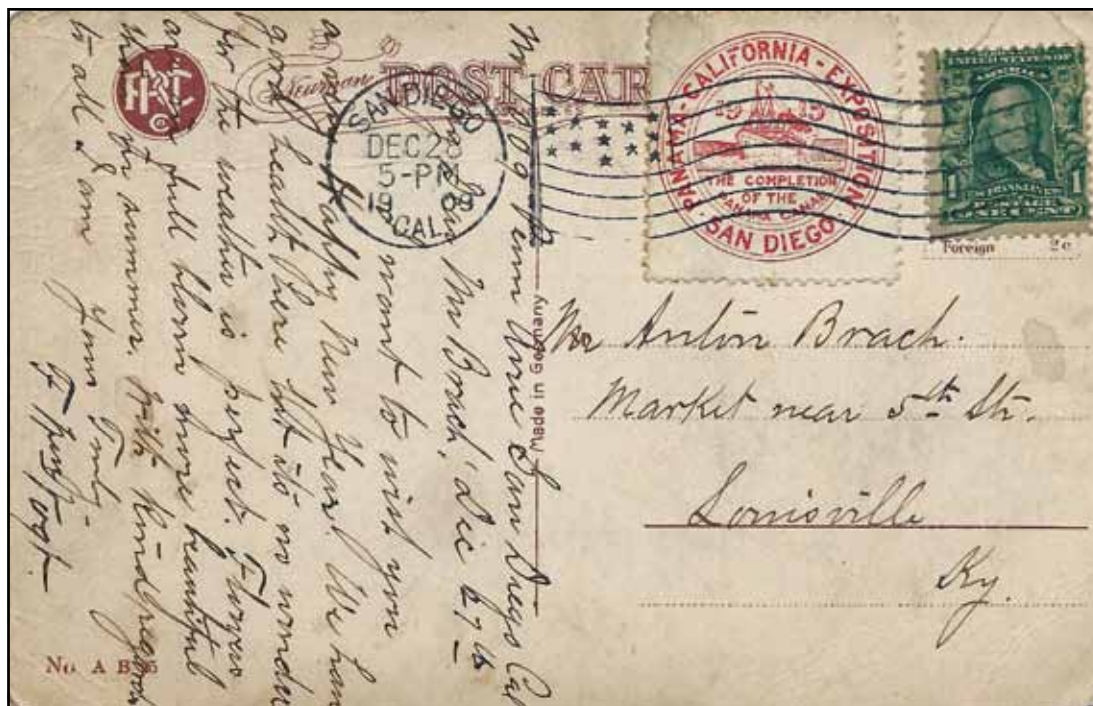 ART
Co
Newman
POST CAR
SAN DIEGO
DEC 28
5-PM
1909
CAL.
PANAMA-CALIFORNIA-EXPOSITION
1915
THE COMPLETION
OF THE
PANAMA CANAL
SAN DIEGO
UNITED STATES OF
AMERICA
1 FRANKLIN 1
POSTAGE
ONE CENT
Foreign 2c
Made in Germany
Mr Anton Brach.
Market near 5th Str.
Louisville
Ky.
Ave San Diego Cal
Mr Brach, Dec 27th
want to wish you
a very Happy New Year. We have
good health here but its no wonder
for the weather is perfect. Flowers
are in full bloom more beautiful
than in summer. With kind regards
to all I am
Yours Truly-
No. A B 35